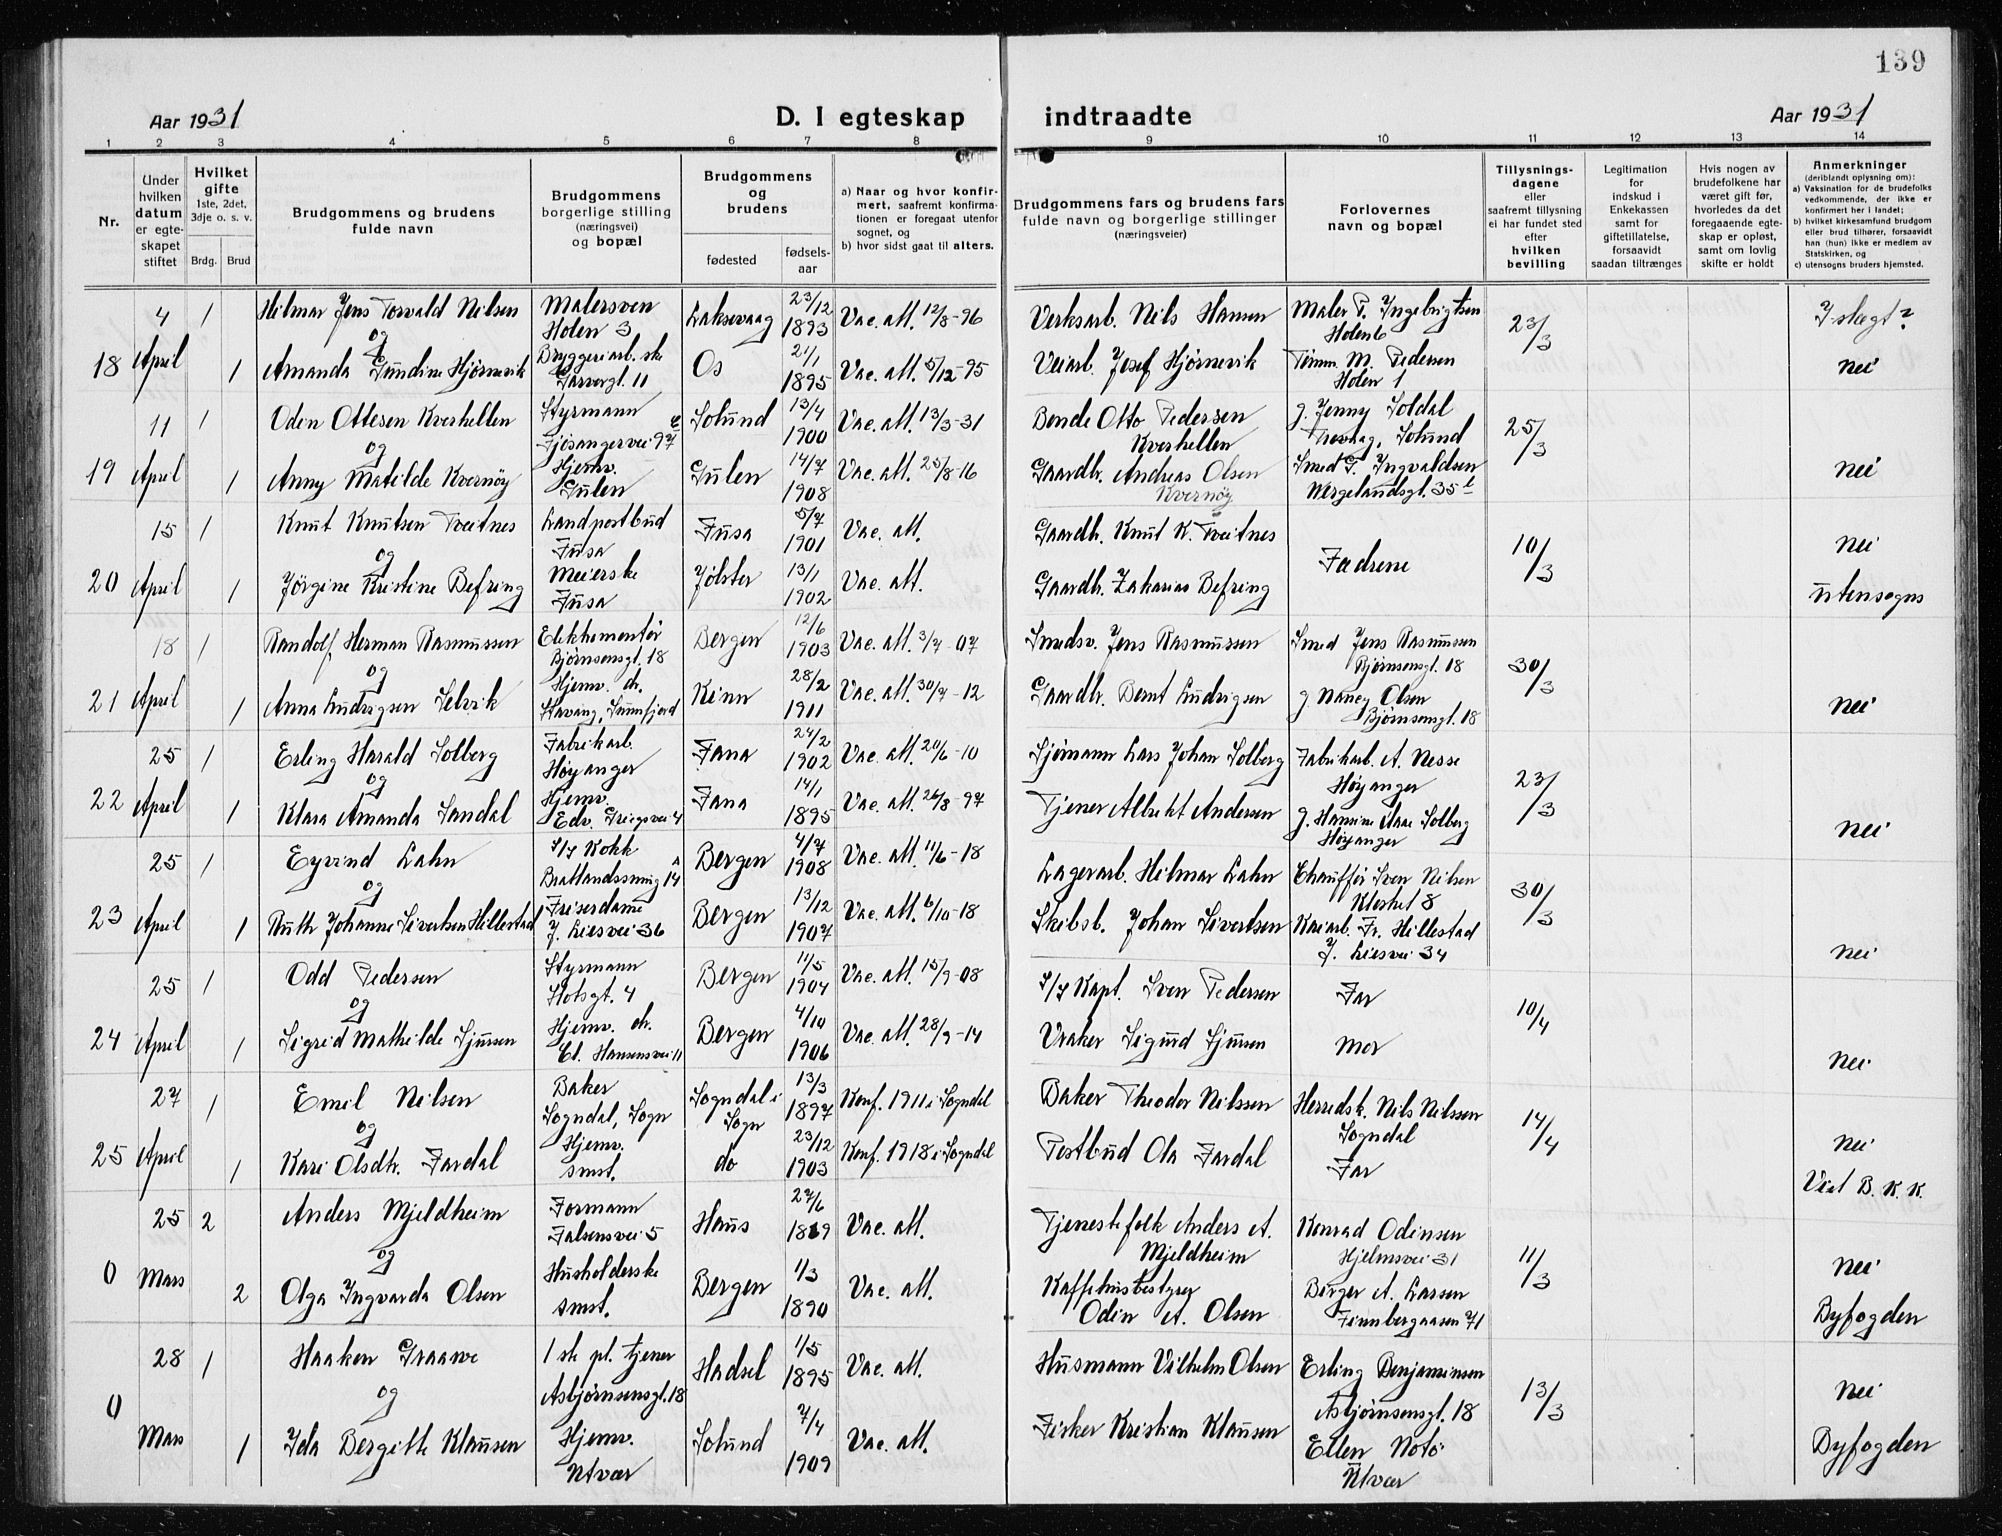 139
Aar 1931
D. I egteskap
indtraadte
Aar 1931
1 2 3 4 5 6 7 8 9 10 11 12 13 14
Nr.
Under hvilken datum er egteskapet stiftet
Hvilket gifte
1ste, 2det, 3dje o. s. v.
Brdg. Brud
Brudgommens og brudens
fulde navn
Brudgommens
borgerlige stilling
(næringsvei)
og bopæl
Brudgommens
og
brudens
fødested
fødsels-
aar
a) Naar og hvor konfir-
mert, saafremt konfirma-
tionen er foregaat utenfor
sognet, og
b) hvor sidst gaat til alters.
Brudgommens fars og brudens fars
fulde navn og borgerlige stillinger
(næringsveier)
Forlovernes
navn og bopæl
Tillysnings-
dagene
eller
saafremt tillysning
ei har fundet sted
efter
hvilken
bevilling
Legitimation
for
indskud i
Enkekassen
samt for
giftetillatelse,
forsaavidt
saadan tiltrænges
Hvis nogen av
brudefolkene har
været gift før,
hvorledes da det
foregaaende egte-
skap er opløst,
samt om lovlig
skifte er holdt
Anmerkninger
(deriblandt oplysning om):
a) Vaksination for de brudefolks
vedkommende, der ikke er
konfirmert her i landet;
b) hvilket kirkesamfund brudgom
eller brud tilhører, forsaavidt
han (hun) ikke er medlem av
Statskirken, og
c) utensogns bruders hjemsted.
4 1 Hilmar Jens Torvald Nilsen Malersven Holen 3 Laksevaag 23/12 1893 Vac. att. 12/8-96 Verksarb. Nils Hansen Maler T. Ingebrigtsen Holen 6 23/3 I slegt?
og
18 April 1 Amanda Gundine Hjørnevik Bryggeriarb.ske Garvergt. 11 Os 21/1 1895 Vac. att. 5/12-95 Veiarb. Josef Hjørnevik Tømm. M. Pedersen Holen 1 nei
11 1 Odin Ottesen Kverhellen Styrmann Fjøsangervei 97 Solund 13/4 1900 Vac. att. 13/3-31 Bonde Otto Pedersen Kverhellen g. Jenny Soldal Solund 25/3
og
19 April 1 Anny Matilde Kvernøy Hjemv. Gulen Gulen 14/7 1908 Vac. att. 25/8-16 Gaardbr. Andreas Olsen Kvernøy Smed T. Ingvaldsen Wergelandsgt. 35 nei
15 1 Knut Knutsen Tveitnes Landpostbud Fusa Fusa 5/7 1901 Vac. att. Gaardbr. Knut K. Tveitnes Fadrene 10/3 nei
og
20 April 1 Jørgine Kristine Befring Meierske Fusa Jølster 13/1 1902 Vac. att. Gaardbr. Zakarias Befring utensogns
18 1 Randolf Herman Rasmussen Elektromontør Bjørnsensgt. 18 Bergen 12/6 1903 Vac. att. 3/7-07 Smedsv. Jens Rasmussen Smed Jens Rasmussen Bjørnsensgt. 18 30/3
og
21 April 1 Anna Ludvigsen Selvik Hjemv. dr. Stavang, Sunnfjord Kinn 28/2 1911 Vac. att. 30/7-12 Gaardbr. Bernt Ludvigsen g Nancy Olsen Bjørnsensgt. 18 nei
25 1 Erling Harald Solberg Fabrikarb. Høyanger Fana 24/2 1902 Vac. att. 20/6-10 Sjømann Lars Johan Solberg Fabrikarb. A. Nesse Høyanger 23/3
og
22 April 1 Klara Amanda Sandal Hjemv. Edv. Griegsvei 4 Fana 14/1 1895 Vac. att. 24/8-97 Tjener Albrekt Andersen g. Hansine Aase Solberg Høyanger nei
25 1 Eyvind Lahn S/S Kokk Bratlandssmug 14 A Bergen 4/7 1908 Vac. att. 11/6-18 Lagerarb. Hilmar Lahn Chauffør Sven Nilsen Klostret 8 30/3
og
23 April 1 Ruth Johanne Sivertsen Hillestad Friserdame J. Liesvei 36 Bergen 13/12 1907 Vac. att. 6/10-18 Skibsb. Johan Sivertsen Kaiarb. Fr. Hillestad J. Liesvei 34 nei
25 1 Odd Pedersen Styrmann Slotsgt. 4 Bergen 11/5 1904 Vac. att. 15/9-08 S/S Kapt. Sven Pedersen Far 10/4
og
24 April 1 Sigrid Mathilde Sjursen Hjemv. dr. Cl. Hansensvei 11 Bergen 4/10 1906 Vac. att. 28/9-14 Vraker Sigurd Sjursen Mor nei
27 1 Emil Nilsen Baker Sogndal, Sogn Sogndal i Sogn 13/3 1897 Konf. 1911 i Sogndal Baker Theodor Nilssen Herredsk. Nils Nilssen Sogndal 14/4 nei
og
25 April 1 Kari Olsdtr. Fardal Hjemv. smst. do 23/12 1903 Konf. 1918 i Sogndal Postbud Ola Fardal Far Viet B. K. K.
25 2 Anders Mjeldheim Formann Falsensvei 5 Haus 27/6 1889 Vac. att. Tjenestefolk Anders A. Mjeldheim Konrad Odinsen Hjelmsvei 31 11/3 nei
og
0 Mars 2 Olga Ingvarda Olsen Husholderske smst. Bergen 1/3 1890 Vac. att. Kaffehusbestyrer Odin A. Olsen Birger A. Larsen Finnbergaasen 71 Byfogden
28 1 Haaken Graawe 1ste pl. tjener Asbjørnsensgt. 18 Hadsel 1/5 1895 Vac. att. Husmann Vilhelm Olsen Erling Benjaminsen Asbjørnsensgt. 18 13/3 nei
og
0 Mars 1 Ida Bergitte Klausen Hjemv. Utvær Solund 7/4 1909 Vac. att. Fisker Kristian Klausen Ellen Notø Utvær Byfogden